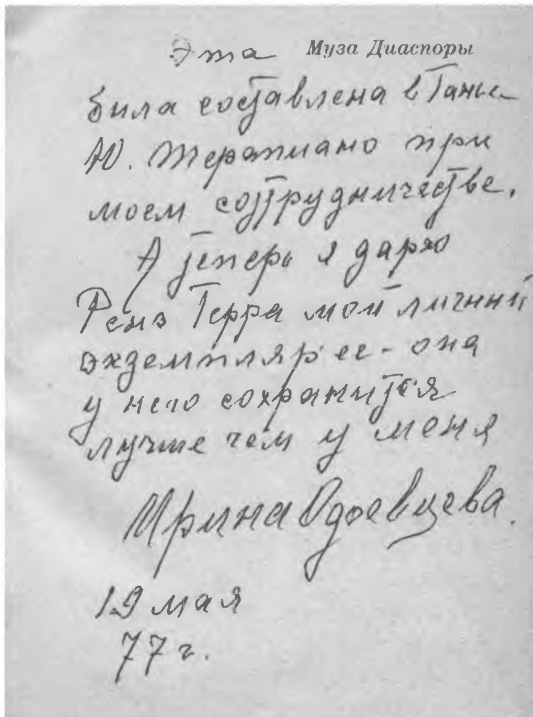 Эта Муза Диаспоры
была составлена в Ганье
Ю. Терапиано при
моем сотрудничестве.
А теперь я дарю
Ренэ Герра мой личный
экземпляр ее - она
у него сохранится
лучше чем у меня
Ирина Одоевцева.
19 мая
77 г.